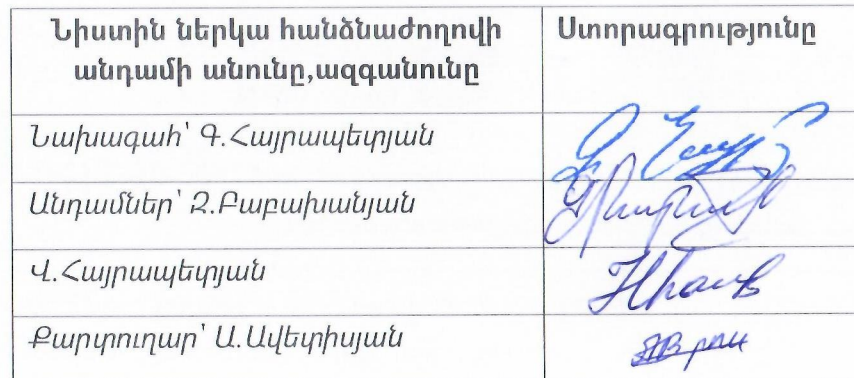 Նիստին ներկա հանձնաժողովի Ստորագրությունը
անդամի անունը,ազգանունը
Նախագահ՝ Գ.Հայրապետյան
Անդամներ՝ Զ.Բաբախանյան
Վ.Հայրապետյան
Քարտուղար՝ Ա.Ավետիսյան